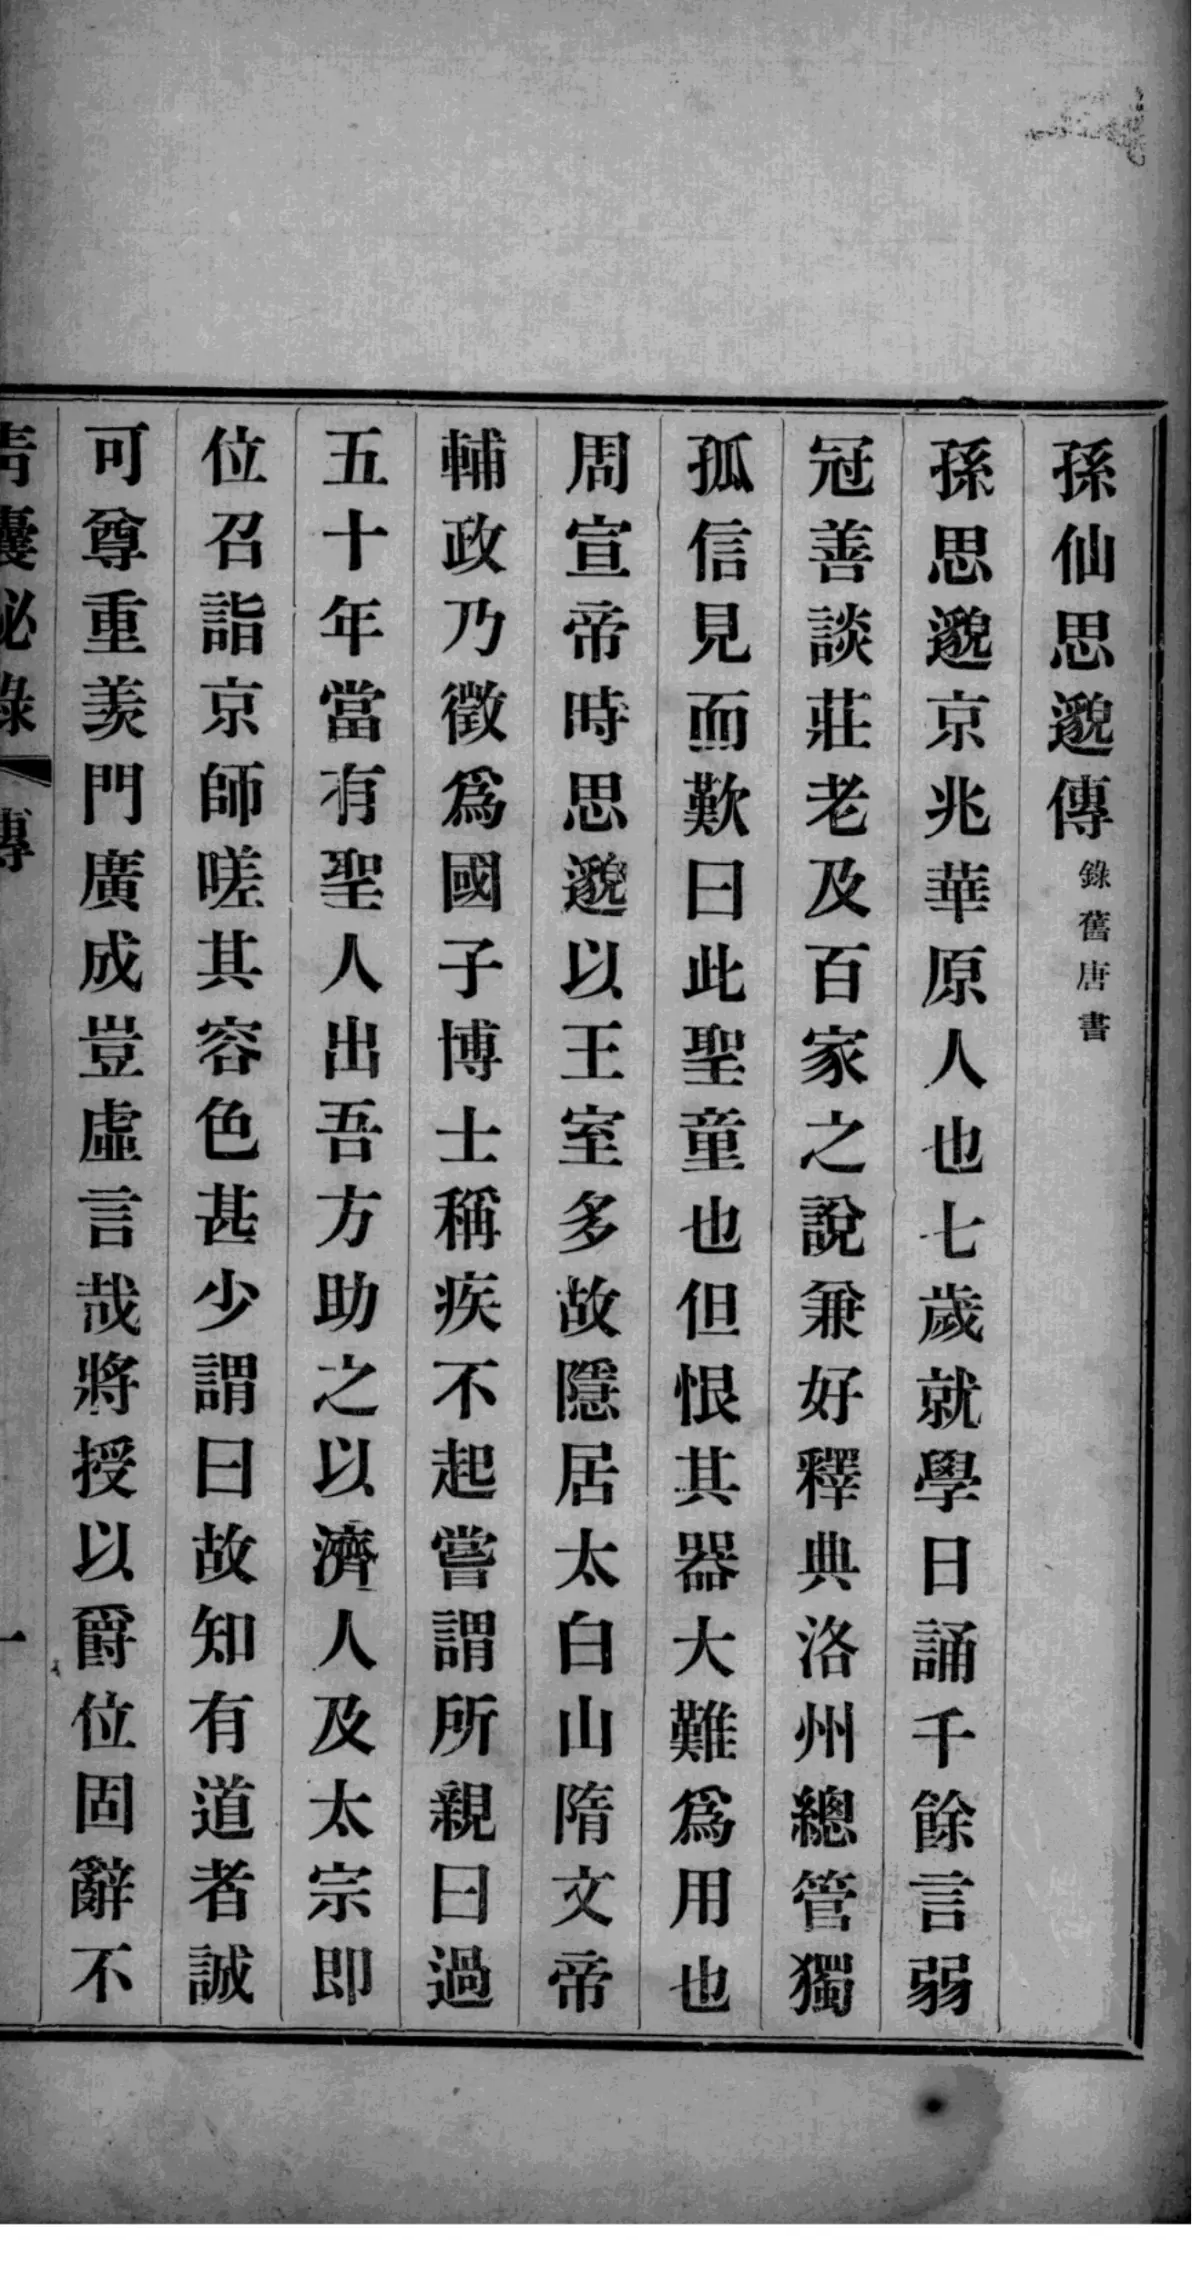 孫仙思邈傳錄舊唐書
孫思邈京兆華原人也七歲就學日誦千餘言弱
冠善談莊老及百家之說兼好釋典洛州總管獨
孤信見而歎曰此聖童也但恨其器大難爲用也
周宣帝時思邈以王室多故隱居太白山隋文帝
輔政乃徵爲國子博士稱疾不起嘗謂所親曰過
五十年當有聖人出吾方助之以濟人及太宗即
位召詣京師嗟其容色甚少謂曰故知有道者誠
可尊重羨門廣成豈虛言哉將授以爵位固辭不
青囊祕錄 傳 一